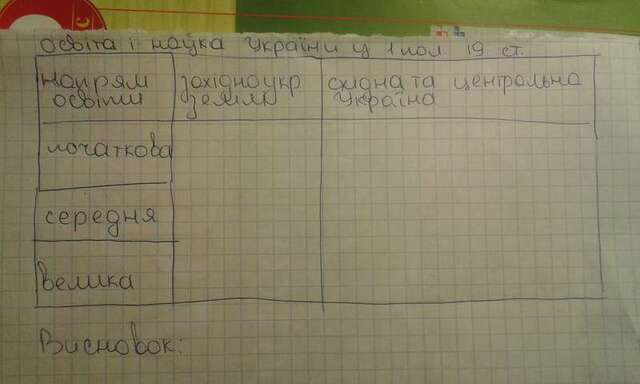 освіта і наука України у 1 пол. 19 ст.
напрям
освіти
західноукр
землі
східна та центральна
Україна
початкова
середня
велика
Висновок: